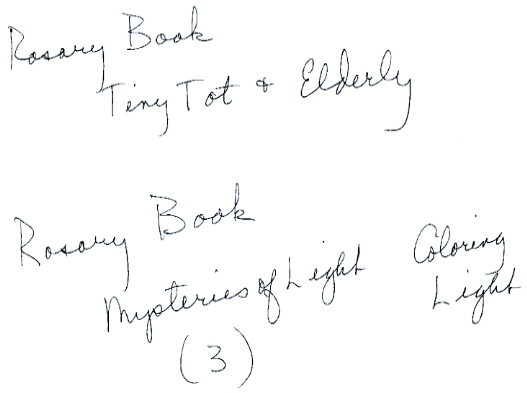 Rosary Book
Tiny Tot & Elderly
Rosary Book
Mysteries of Light
(3)
Coloring
Light